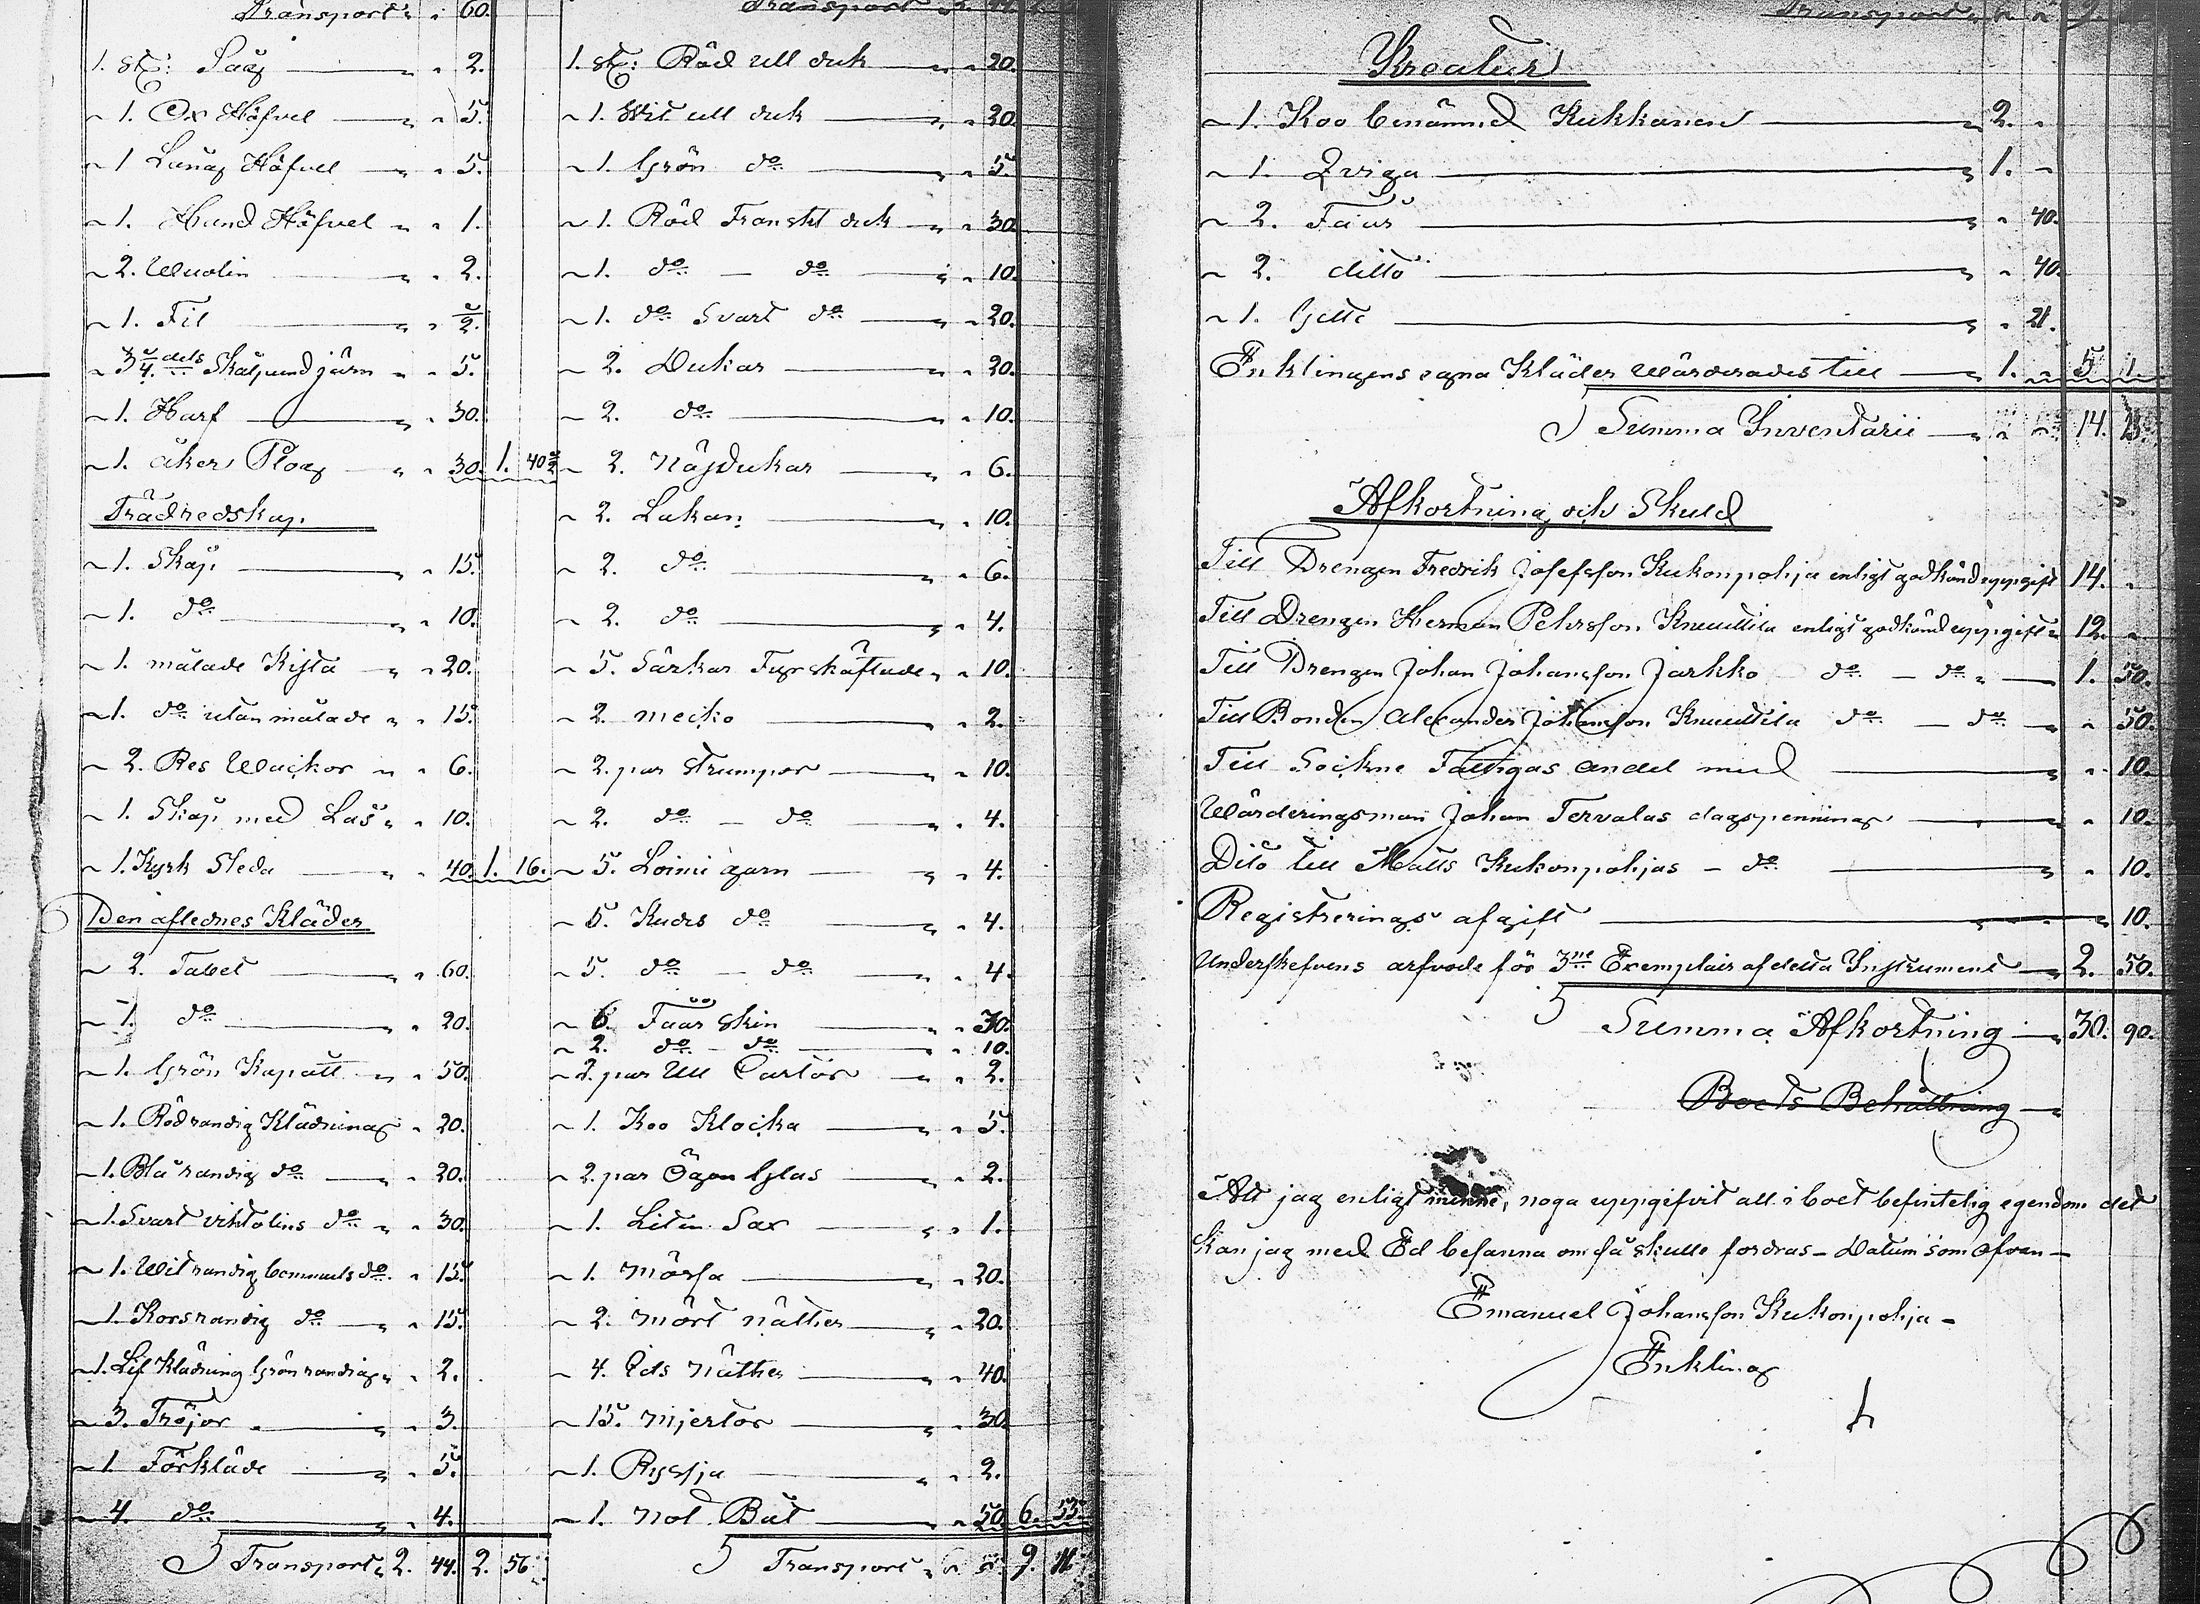 Transport " " 60.
1. st: Såg " " 2.
" 1. Ox Höfvel " " 5.
" 1 Lång Höfvel " " 5.
" 1. Hand Höfvel " " 1.
" 2. Wuolin " " 2.
" 1. Fil " " ½.
" 3/4 dels Skålpund järn " " 5.
" 1. Harf " " 30.
" 1. åker Plog " " 30. 1. 40½
Trädredskap.
" 1. Skåp " " 15.
" 1. do " " 10.
" 1. målade Kista " " 20.
" 1. do utan målade " " 15.
" 2. Res Wackor " " 6.
" 1. Skåp med Lås " " 10.
" 1. Kyrk Sleda " " 40. 1. 16.
Den aflednes Kläder
" 2. " " 60.
" 1. do " " 20.
" 1. Grön Kapott " " 50.
" 1. Rödrandig Klädning " 20.
" 1. Blå randig do " " 20.
" 1. Svart do " " 30.
" 1. Wit randig bommuls do " 15.
" 1. Korsrandig do " " 15.
" 1. Lif Klädning Grönrandig " " 2.
" 3. Tröjor " " 3.
" 1 Förkläde " " 5.
" 4. do " " 4.
Transport " 2. 44. 2. 56
Transport
1. st: Röd ull duk " " 20.
" 1. Wit ull duk " " 20.
" 1. Grön do " " 5.
" 1. Röd Franskt duk " " 30.
" 1. do – do " " 10.
" 1. do Svart do " " 20.
" 2. Dukar " " 20.
" 2. do " " 10.
" 2. Näsdukar " " 6.
" 2. Lakan " " 10.
" 2. do " " 6.
" 2. do " " 4.
" 5. Särkar Fyrskäftade " " 10.
" 2. mecko " " 2.
" 2. par strumpor " " 10.
" 2. do – do " " 4.
" 5. Loimi garn " " 4.
" 5. Kuds do " " 4.
" 5. do – do " " 4.
" 6. Fåår skin " " 30.
" 2. do – do " " 10.
" 2. par Ull Cartor " " 2.
" 1. Koo Klocka " " 5.
" 2. par Ögon Glas " " 2.
" 1. Liten Sax " " 1.
" 1. Mörsa " " 20.
" 2. Mört nätter " " 20.
" 4. Eds Näther " " 40.
" 15. Mjertor " " 30.
" 1. Ryssja " " 2.
" 1. Not Båt " " 50. 6. 55.
Transport " " " 9. 11
Transport " " " 9.
Kreatur
" 1. Koo benämnd Kukkanen " 2. "
" 1. Qviga " 1. "
" 2. Fåår " " 40.
" 2. ditto " " 40.
" 1. Gette " " 21.
Enklingens egna Kläder wärderades till " 1. " 5. 1.
Summa Inventarii " " " 14.
Afkortning och Skuld
Till Drengen Fredrik Josefsson Kukonpohja enligt godkänd uppgift 14. "
Till Drengen Herman Pehrsson Knuuttila enligt godkänd uppgift " 12. "
Till Drengen Johan Johansson Jarkko do – do " 1. 50.
Till Bonden Alexander Johansson Knuuttila do – do " " 50.
Till Sockne Fattigas andel med " " 10.
Wärderingsman Johan Tervalas dagspenning " " 10.
Dito till Matts Kukonpohjas – do " " 10.
Registrerings afgift " 10.
Underskefvens arfvode för 3ne Exemplair af detta Instrument " 2. 50.
Summa Afkortning " 30. 90.
Boets Behållning "
Att jag enligt minne, noga uppgifvit all i boet befintelig egendom det
kan jag med Ed besanna om så skulle fordras – Datum som ofvan –
Emanuel Johansson Kukonpohja –
Enkling